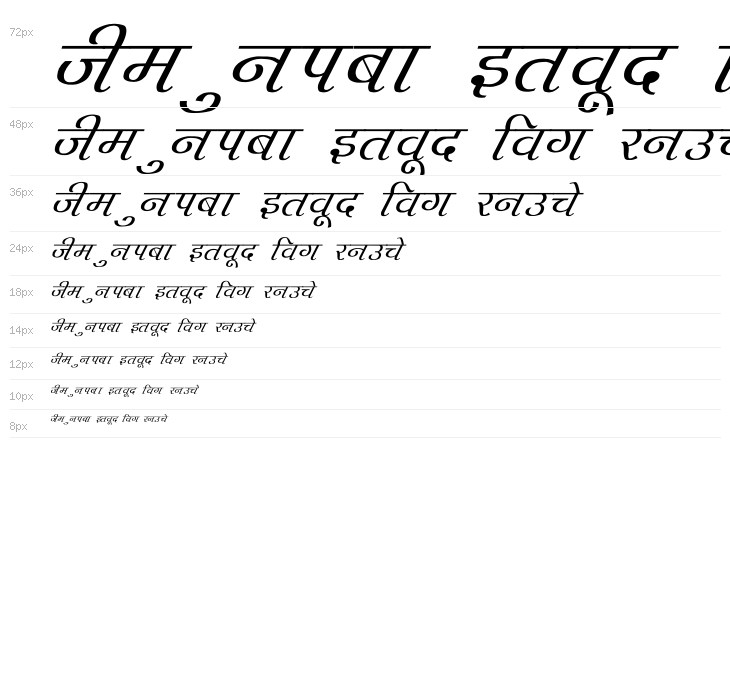 72px जीम ुनपबा इतवूद
48px जीम ुनपबा इतवूद विग
36px जीम ुनपबा इतवूद विग रनउचे
24px जीम ुनपबा इतवूद विग रनउचे
18px जीम ुनपबा इतवूद विग रनउचे
14px जीम ुनपबा इतवूद विग रनउचे
12px जीम ुनपबा इतवूद विग रनउचे
10px जीम ुनपबा इतवूद विग रनउचे
8px जीम ुनपबा इतवूद विग रनउचे